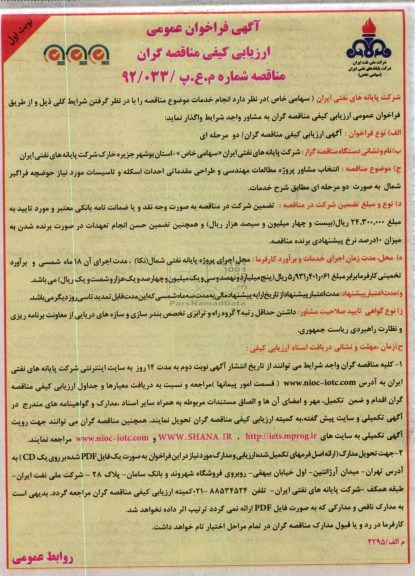 نوبت اول
آگهی فراخوان عمومی
ارزیابی کیفی مناقصه گران
مناقصه شماره م.ع.پ /۹۲/۰۳۳
شرکت ملی نفت ایران
شرکت پایانه های نفتی ایران
(سهامی خاص)
شرکت پایانه های نفتی ایران (سهامی خاص )در نظر دارد انجام خدمات موضوع مناقصه را با در نظر گرفتن شرایط کلی ذیل و از طریق
فراخوان عمومی ارزیابی کیفی مناقصه گران به مشاور واجد شرایط واگذار نماید:
الف) نوع فراخوان : آگهی ارزیابی کیفی مناقصه گران/ دو مرحله ای
ب)نام و نشانی دستگاه مناقصه گزار : شرکت پایانه های نفتی ایران «سهامی خاص» -استان بوشهر جزیره خارک شرکت پایانه های نفتی ایران
ج) موضوع مناقصه : انتخاب مشاور پروژه مطالعات مهندسی و طراحی مقدماتی احداث اسکله و تاسیسات مورد نیاز حوضچه فراگیر
شمال به صورت دو مرحله ای مطابق شرح خدمات.
د) نوع و مبلغ تضمین شرکت در مناقصه : تضمین شرکت در مناقصه به صورت وجه نقد و یا ضمانت نامه بانکی معتبر و مورد تایید به
مبلغ ۲۴,۳۰۰,۰۰۰ ریال(بیست و چهار میلیون و سیصد هزار ریال) و همچنین تضمین حسن انجام تعهدات در صورت برنده شدن به
میزان ۱۰درصد نرخ پیشنهادی برنده مناقصه.
ه) محل، مدت زمان اجرای خدمات و برآورد کارفرما : محل اجرای پروژه پایانه نفتی شمال(نکا) ، مدت اجرای آن ۱۸ ماه شمسی و برآورد
تخمینی کارفرما برابر مبلغ ۵,۹۳۱,۴۰۱,۰۶۱ ریال( پنج میلیارد و نهصد و سی و یک میلیون و چهارصد و یک هزار و شصت و یک ریال) می باشد.
و)مدت اعتبار پیشنهاد: مدت اعتبار پیشنهاد از تاریخ ارایه پیشنهاد مالی به مدت سه ماه شمسی که این مدت قابل تمدید تا سی روز دیگر می باشد
ز) نوع گواهی تایید صلاحیت مشاور: داشتن حداقل رتبه ۲ گروه راه و ترابری تخصص بندر سازی و سازه های دریایی از معاونت برنامه ریزی
و نظارت راهبردی ریاست جمهوری.
ح)زمان ،مهلت و نشانی دریافت اسناد ارزیابی کیفی :
۱- کلیه مناقصه گران واجد شرایط می توانند از تاریخ انتشار آگهی نوبت دوم به مدت ۱۴ روز به سایت اینترنتی شرکت پایانه های نفتی
ایران به آدرس www.nioc-iotc.com ( قسمت امور پیمانها )مراجعه و نسبت به دریافت معیارها و جداول ارزیابی کیفی مناقصه
گران اقدام و ضمن تکمیل، مهر و امضای آن ها و الصاق مستندات مربوطه به همراه سایر اسناد ،مدارک و گواهینامه های مندرج در
آگهی تکمیلی و سایت پیش گفته،به کمیته ارزیابی کیفی مناقصه گران تحویل نمایند. همچنین مناقصه گران می توانند جهت رویت
آگهی تکمیلی به سایت های http://iets.mprog.ir ، WWW.SHANA.IR و www.nioc-iotc.com مراجعه نمایند.
۲- جهت تحویل مدارک (ارائه اصل فرمهای تکمیل شده ارزیابی و مدارک مورد نیاز در این فراخوان به صورت یک فایل PDF شده بر روی یک CD ) به
آدرس تهران- میدان آرژانتین- اول خیابان بیهقی- روبروی فروشگاه شهروند و بانک سامان- پلاک ۲۸ - شرکت ملی نفت ایران-
طبقه همکف -شرکت پایانه های نفتی ایران- تلفن ۸۸۵۳۴۵۲۴ -۰۲۱کمیته ارزیابی کیفی مناقصه گران مراجعه گردد. بدیهی است
به مدارک ناقص و مدارکی که به صورت فایل PDF ارائه نمی گردد ترتیب اثر داده نخواهد شد.
کارفرما در رد و یا قبول مدارک مناقصه گران در تمام مراحل اختیار تام خواهد داشت.
م الف/۲۲۹۵
روابط عمومی